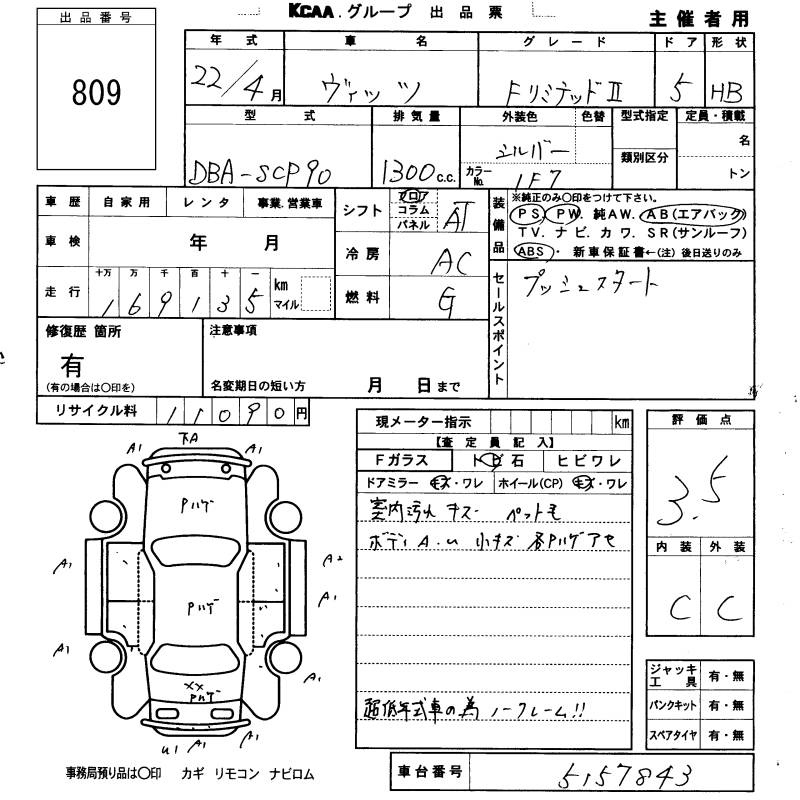 KCAA.グループ 出品票
主催者用
出品番号
809
年式 車名 グレード ドア 形状
22/4月 ヴィッツ FリミテッドⅡ 5 HB
型式 排気量 外装色 色替 型式指定 定員・積載
シルバー 名
類別区分
DBA-SCP90 1300c.c. カラーNo. 1F7 トン
車歴 自家用 レンタ 事業.営業車
車検 年 月
走行 十万 万 千 百 十 一
169135 km マイル
シフト フロア コラム パネル AT
冷房 AC
燃料 G
装備品 ※純正のみ〇印をつけて下さい。
PS. PW. 純AW. AB(エアバック)
TV. ナビ. カワ. SR(サンルーフ)
ABS・ 新車保証書←(注)後日送りのみ
セールスポイント
プッシュスタート
修復歴 箇所
有
(有の場合は〇印を)
注意事項
名変期日の短い方 月 日まで
リサイクル料 11090円
現メーター指示 km
【査定員記入】
Fガラス トビ石 ヒビワレ
ドアミラー キズ・ワレ ホイール(CP) キズ・ワレ
室内汚れ キズ ペット毛
ボディA.U 小キズ 各Pハゲアセ
超低年式車の為 ノークレーム!!
評価点
3.5
内装 外装
C C
ジャッキ工具 有・無
パンクキット 有・無
スペアタイヤ 有・無
車台番号 5157843
A1 下A A1
Pハゲ
A1 A2
A1
Pハゲ
A1
A1
XX
Pハゲ
U1 A1 A1
事務局預り品は〇印 カギ リモコン ナビロム